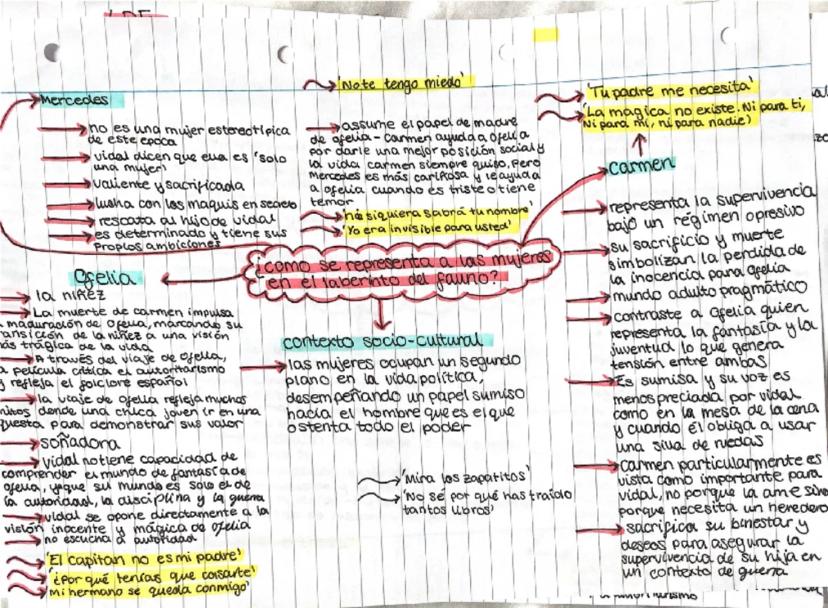 Mercedes
no es una mujer estereotípica
de este epoca
vidal dicen que ella es 'solo
una mujer'
valiente y sacrificada
lusha con los maquis en secreto
rescata al hijo de vidal
es determinado y tiene sus
propias ambiciones
'No te tengo miedo'
assume el papel de madre
de ofelia - Carmen ayuda a ofelia
por darle una mejor posición social y
la vida carmen siempre quiso, pero
Mercedes es más cariñosa y le ayuda
a ofelia cuando es triste o tiene
temor
'ni siquiera sabrá tu nombre'
'Yo era invisible para usted'
'Tu padre me necesita'
'La magica no existe. Ni para ti,
Ni para mi, ni para nadie)
Carmen
representa la supervivencia
bajo un régimen opresivo
su sacrificio y muerte
simbolizan la perdida de
la inocencia para ofelia
mundo adulto pragmático
contraste a ofelia quien
representa la fantasía y la
juventud lo que genera
tensión entre ambas
Es sumisa y su voz es
menospreciada por vidal
como en la mesa de la cena
y cuando él obliga a usar
una silla de ruedas
Carmen particularmente es
vista como importante para
vidal, no porque la ame sino
porque necesita un heredero
sacrifica su binestar y
deseos para asegurar la
supervivencia de su hija en
un contexto de guerra
¿como se representa a las mujeres
en el laberinto del fauno?
Ofelia
la niñez
La muerte de carmen impulsa
maduración de ofelia, marcando su
transición de la niñez a una visión
más trágica de la vida
A través del viaje de ofelia,
la película critica el autoritarismo
y refleja el folclore español
la viaje de ofelia refleja muchos
mitos donde una chica joven ir en una
questa para demonstrar sus valor
soñadora
vidal no tiene capacidad de
comprender el mundo de fantasía de
ofelia, ya que su mundo es solo el de
la autoridad, la disciplina y la guerra
vidal se opone directamente a la
visión inocente y mágica de ofelia
no escucha a autoridad
'El capitan no es mi padre'
'¿Por qué tenías que casarte'
'mi hermano se queda conmigo'
contexto socio-cultural
las mujeres ocupan un segundo
plano en la vida política,
desempeñando un papel sumiso
hacia el hombre que es el que
ostenta todo el poder
'Mira los zapatitos'
'No sé por qué has traído
tantos libros'